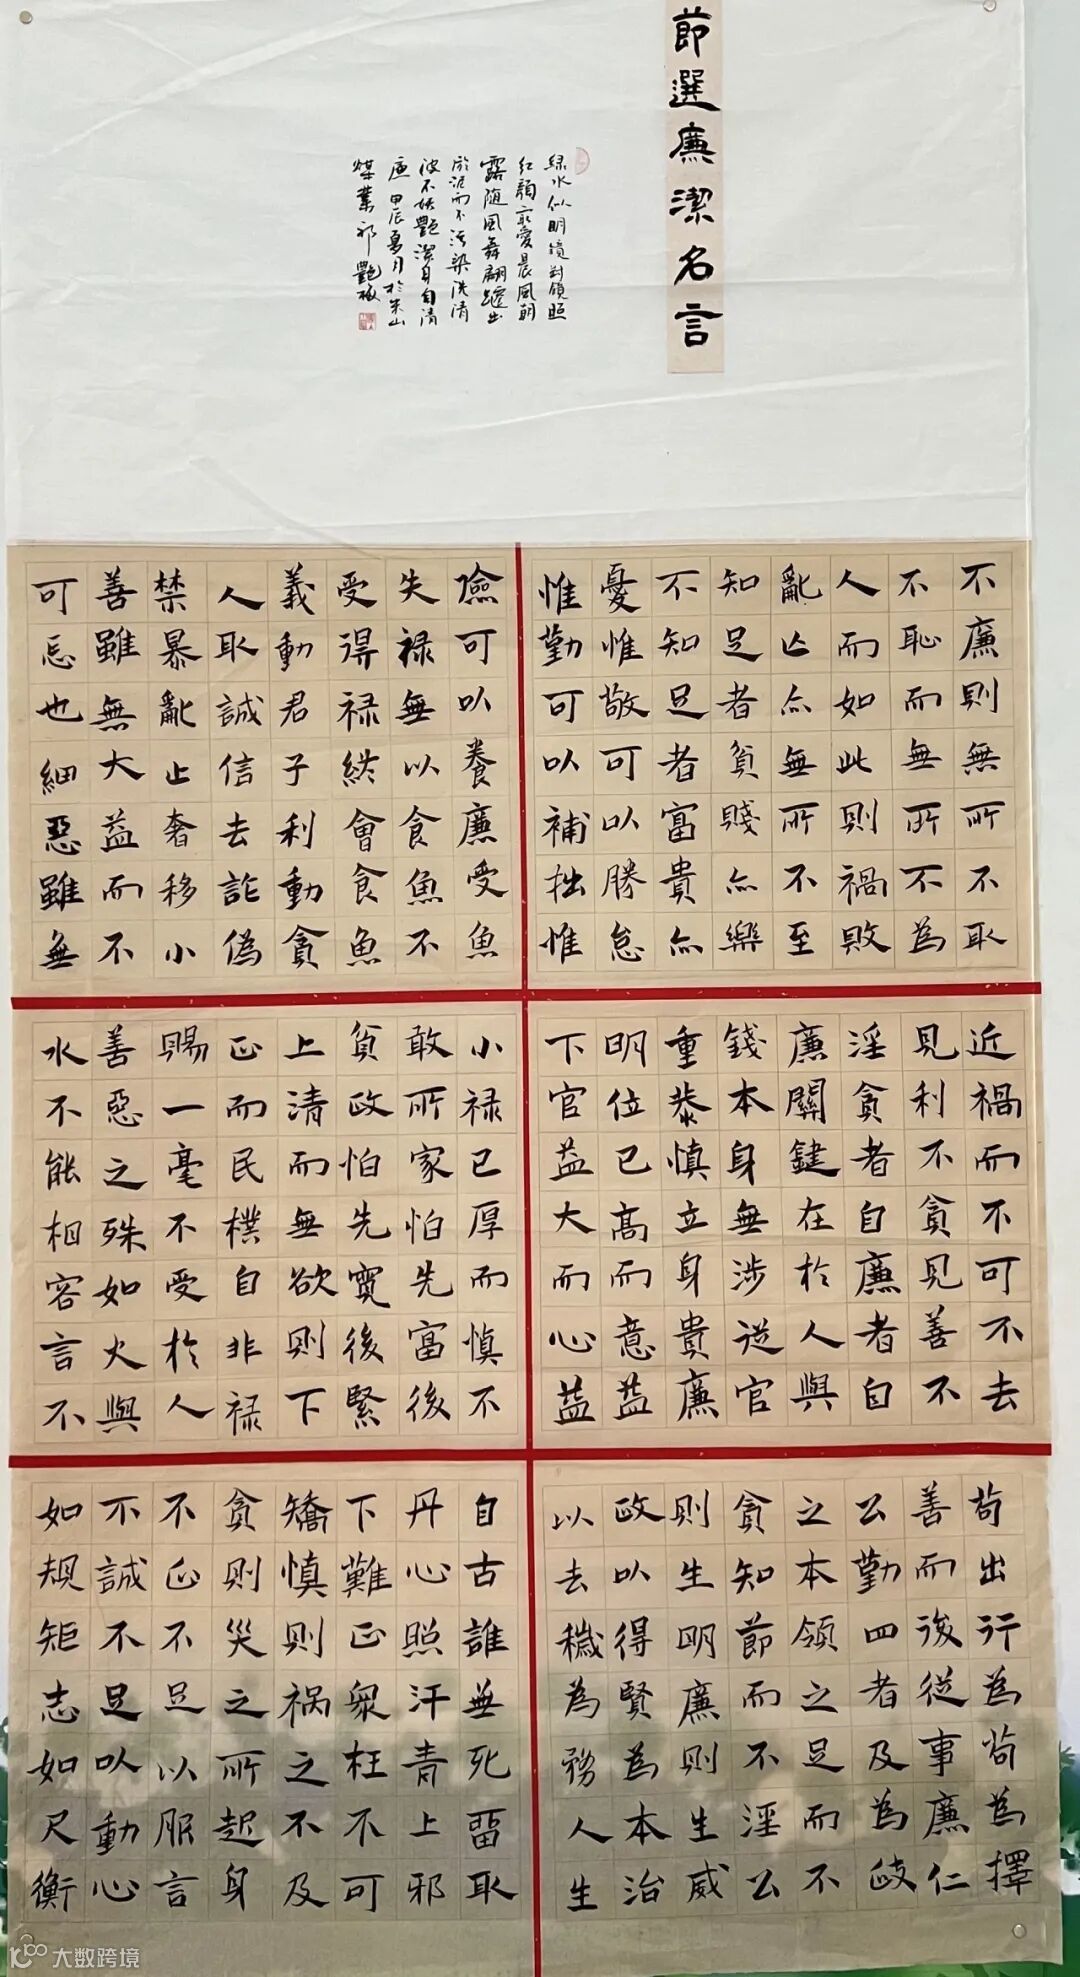 節選廉潔名言
绿水似明鏡對鏡照
红顏最愛晨風朝
露随風舞翩躚出
於泥而不污染洗清
波不妖艷潔身自清
廉 甲辰夏月於朱山
煤業祁艷梅
不廉則無所不取
不恥而無所不為
人而如此則禍敗
亂亡亦無所不至
知足者貧賤亦樂
不知足者富貴亦
憂惟敬可以勝怠
惟勤可以補拙惟
儉可以養廉受魚
失禄無以食魚不
受得禄終會食魚
義動君子利動貪
人取誠信去詐偽
禁暴亂止奢移小
善雖無大益而不
可忌也細惡雖無
近禍而不可不去
見利不貪見善不
淫貪者自廉者自
廉關鍵在於人與
錢本身無涉從官
重恭慎立身貴廉
明位已高而意益
下官益大而心益
小禄已厚而慎不
敢所家怕先富後
貧政怕先寬後緊
上清而無欲則下
正而民樸自非禄
賜一毫不受於人
善惡之殊如火與
水不能相容言不
苟出行為苟為擇
善而後從事廉仁
公勤四者及為政
之本領之足而不
貪知節而不淫公
則生明廉則生威
政以得賢為本治
以去穢為務人生
自古誰無死留取
丹心照汗青上邪
下難正衆枉不可
矯慎則祸之不及
貪則災之所起身
不正不足以服言
不誠不足以動心
如規矩志如尺衡
大数跨境